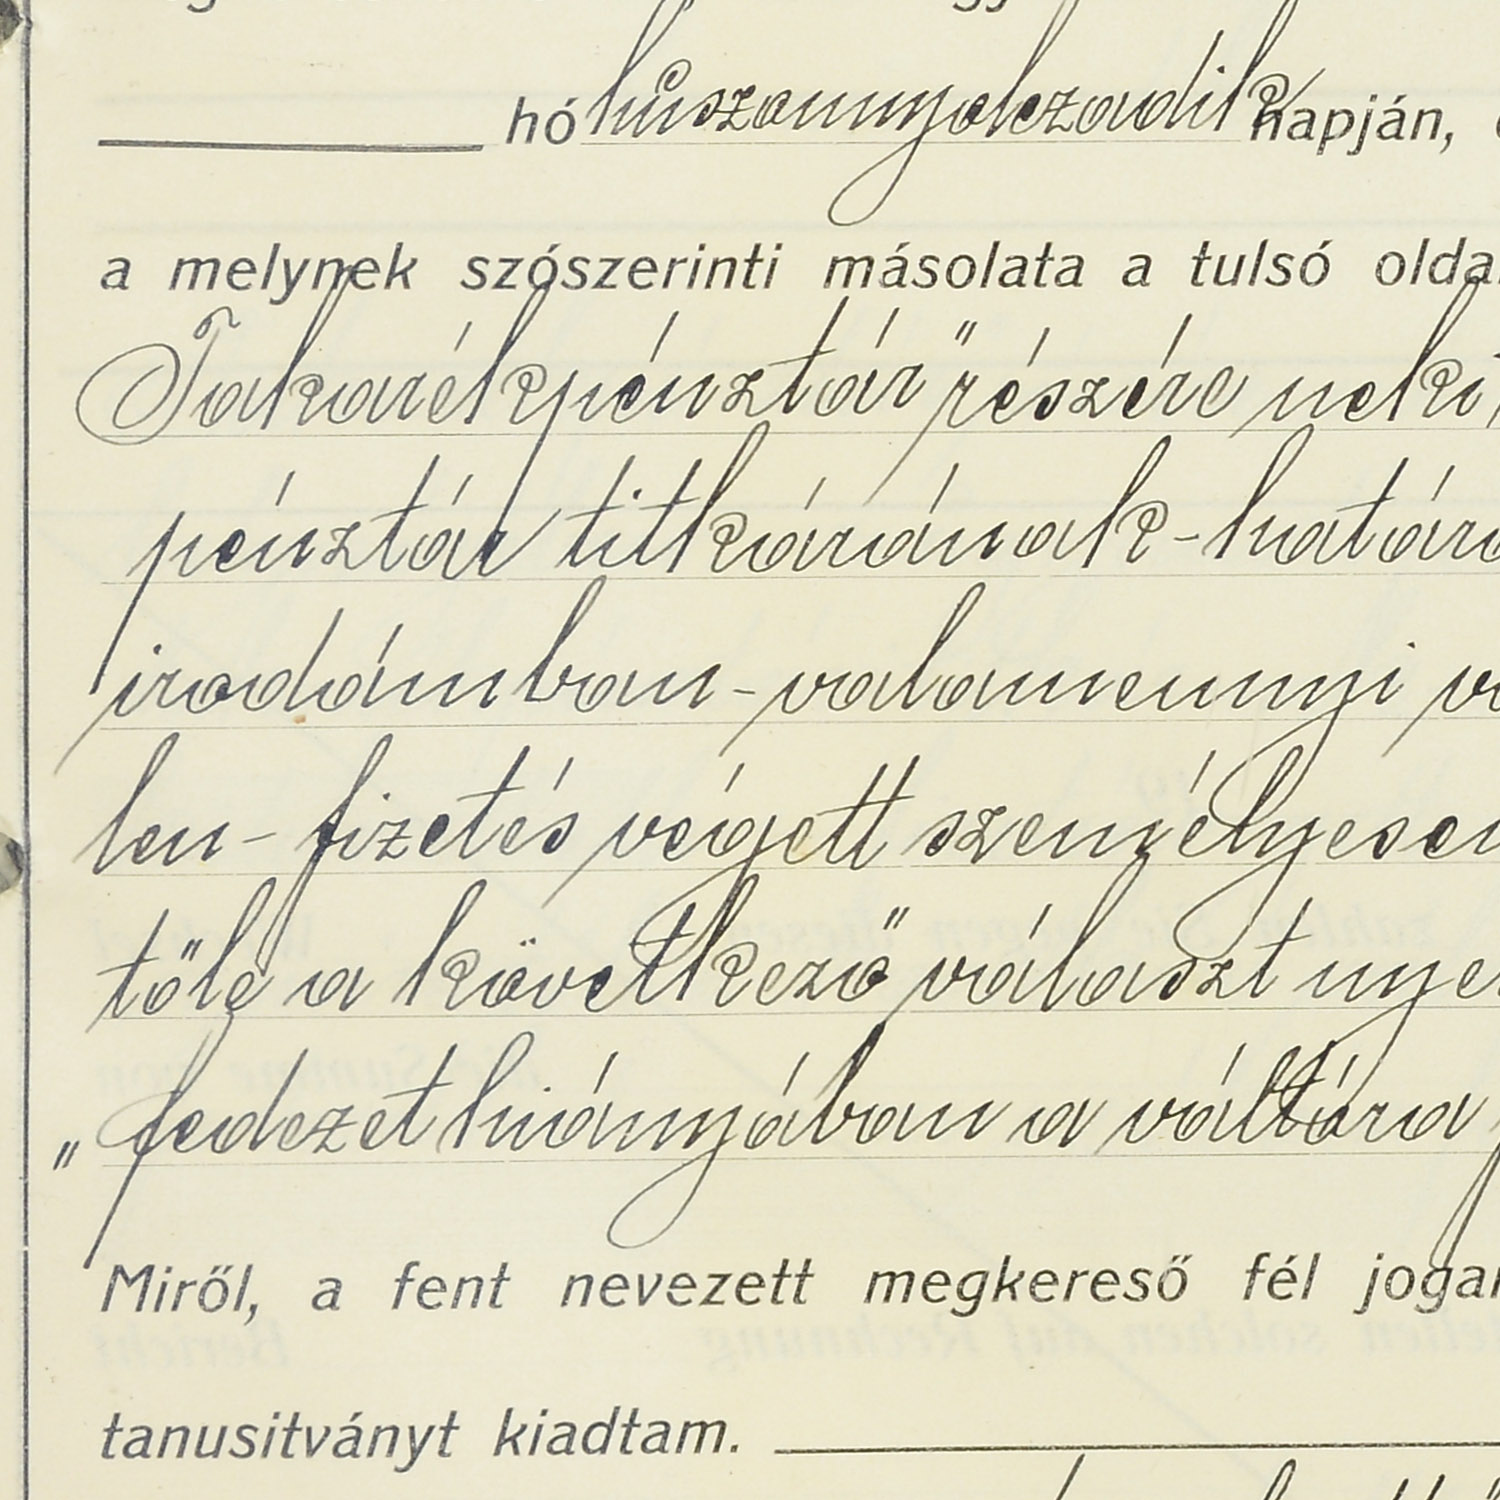 hó huszonnyolczadik napján,
a melynek szószerinti másolata a tulsó
Takarékpénztár" részére neki,
pénztár titkárának-
irodámban - valamennyi
len - fizetés végett személyesen
tőle a következő választ
„fedezet hiányában a váltóra
Miről, a fent nevezett megkereső fél
tanusitványt kiadtam.